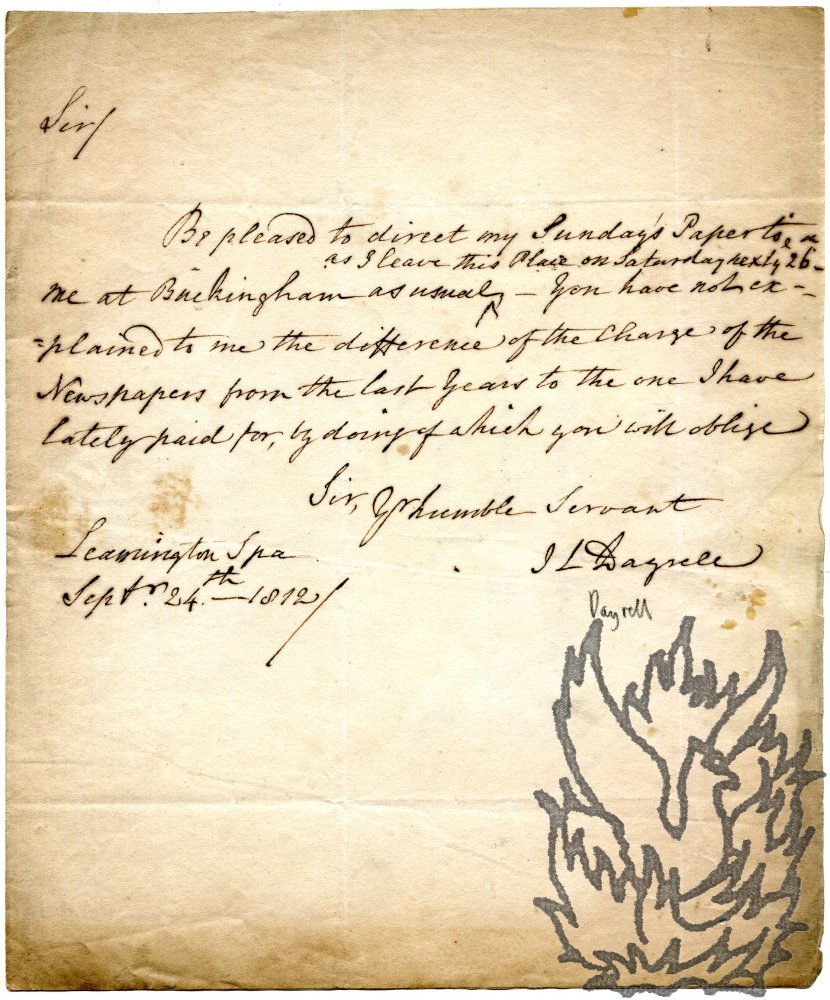 Sir/
Be pleased to direct my Sunday's Paper to
as I leave this Place on Saturday next, 26
me at Buckingham as usual, ^ – You have not ex-
=plained to me the difference of the Charge of the
Newspapers from the last Years to the one I have
lately paid for, by doing of which you will oblige
Sir, Yr humble Servant
Leamington Spa
J L Dayrell
Septr. 24th – 1812/
Dayrell